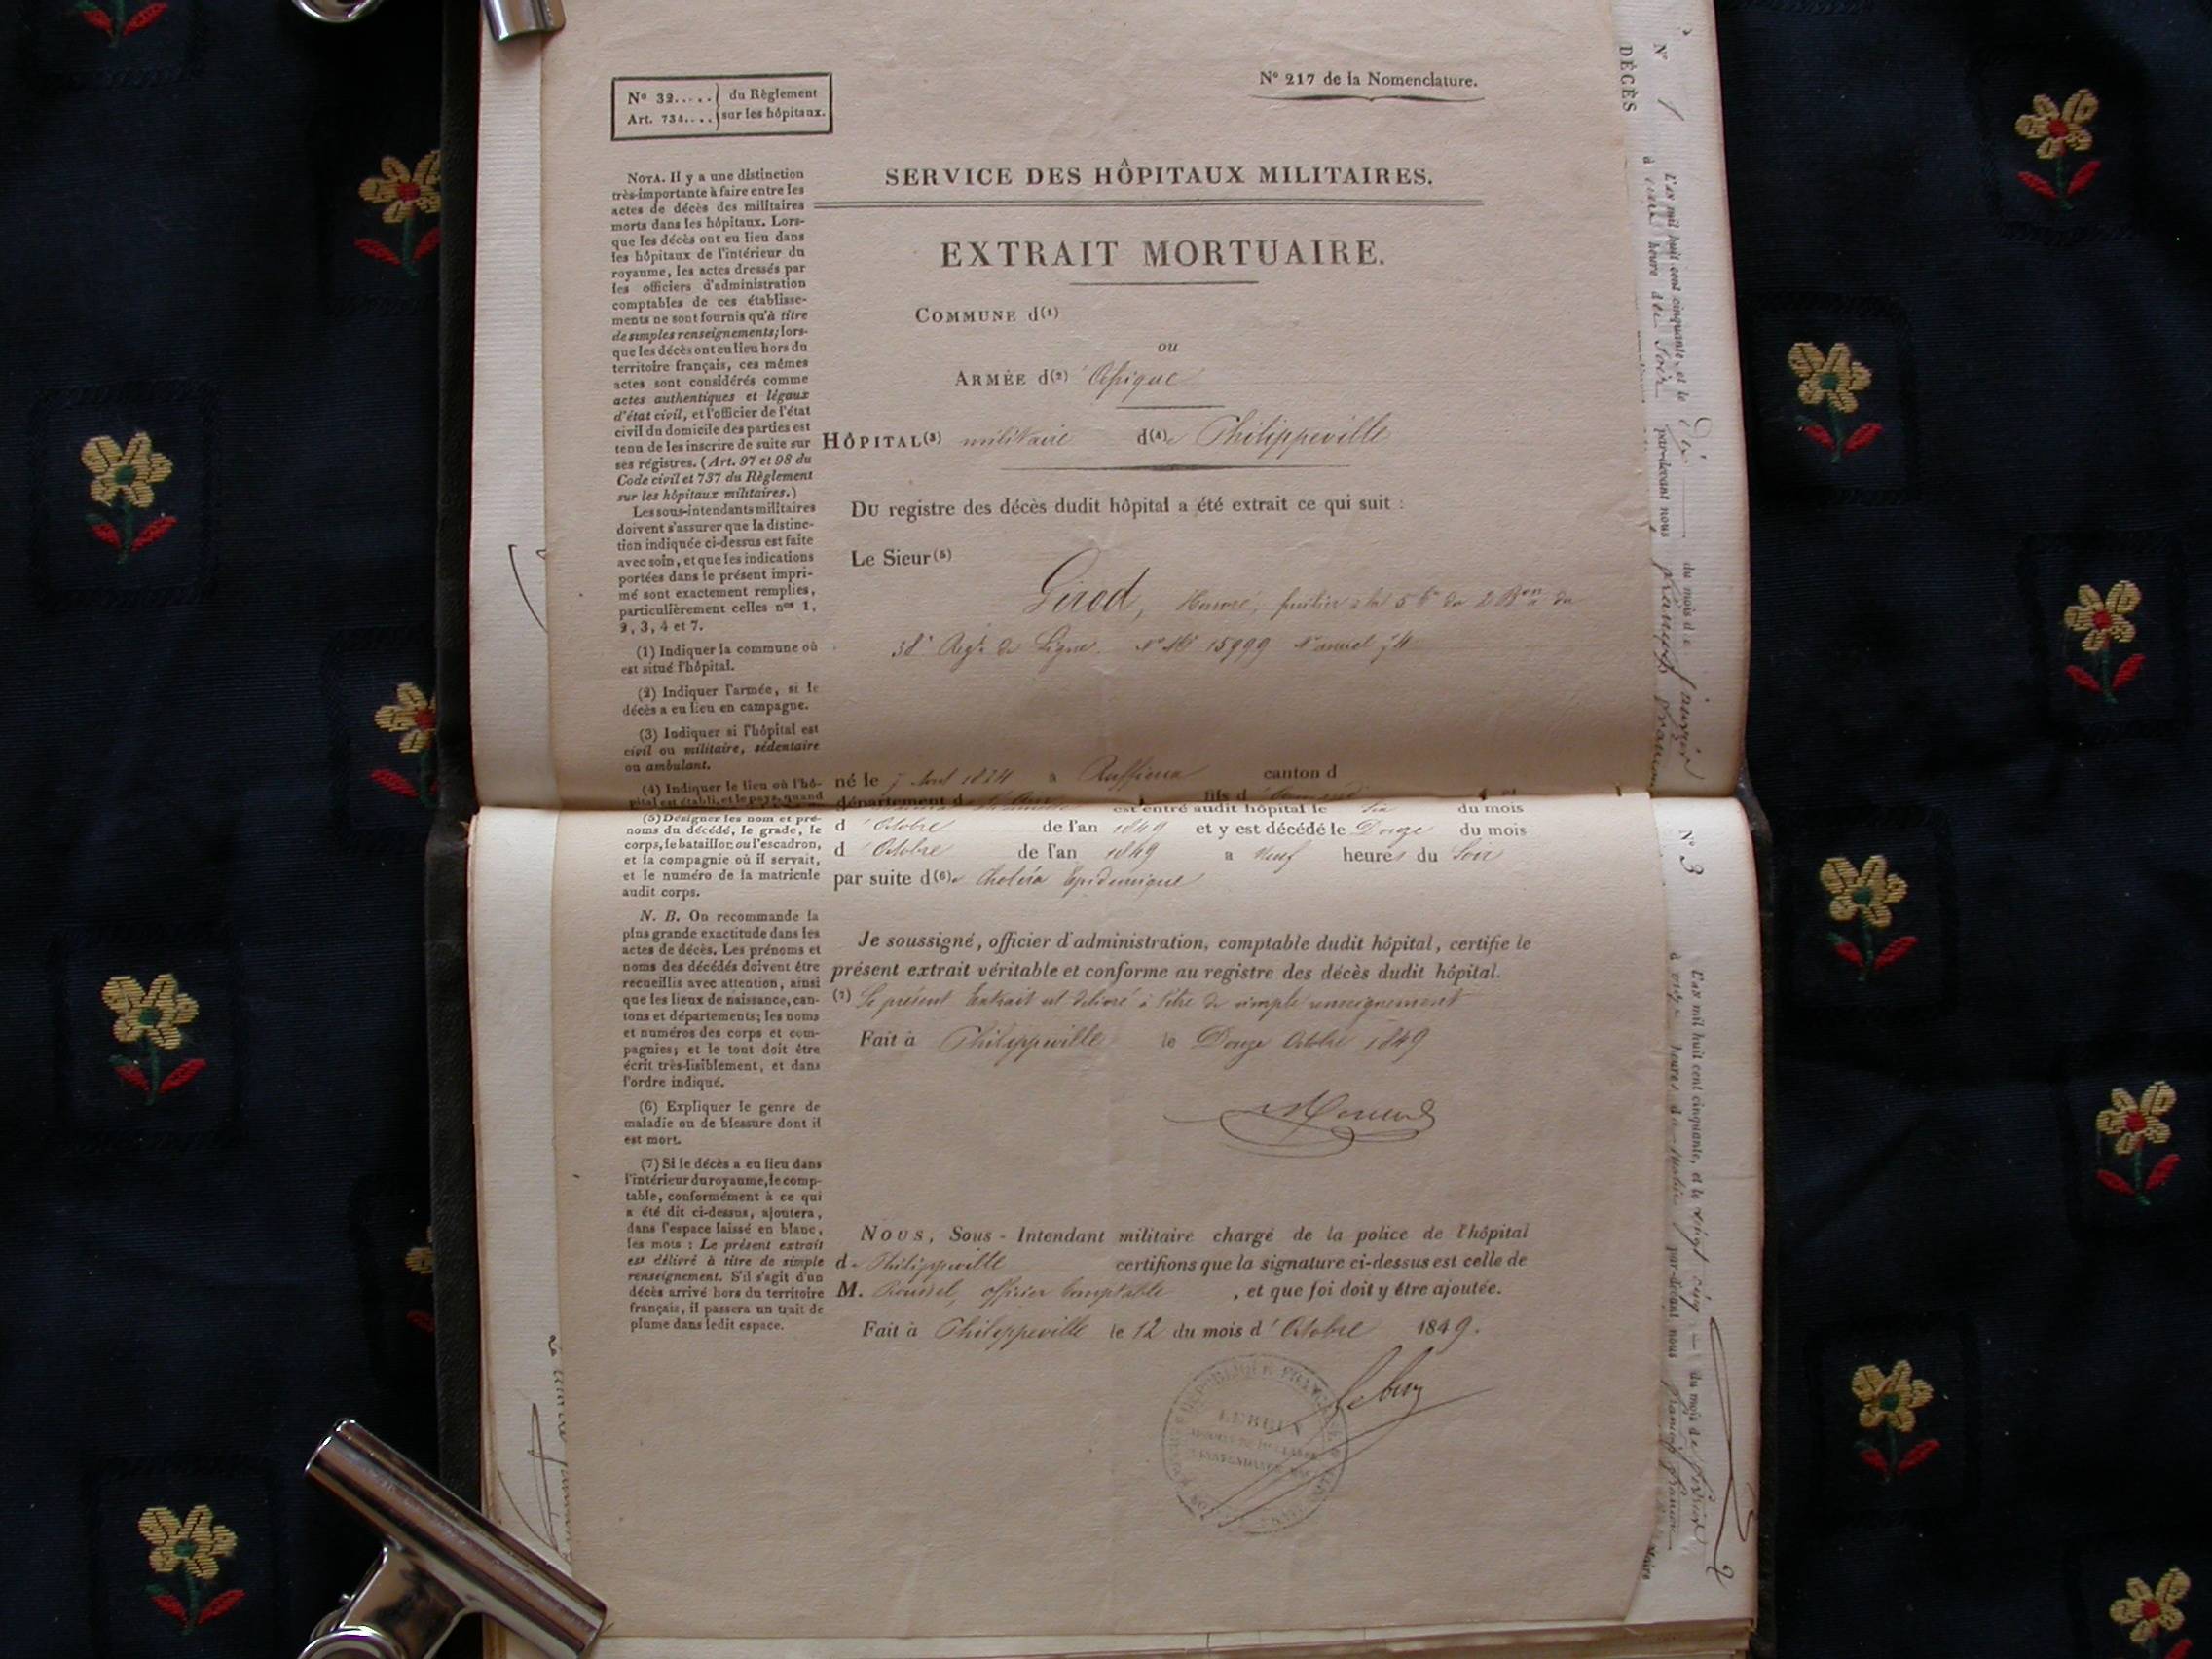 N° 217 de la Nomenclature.
N° 32..... du Règlement
Art. 734.... sur les hôpitaux.
SERVICE DES HÔPITAUX MILITAIRES.
EXTRAIT MORTUAIRE.
COMMUNE d(1)
ou
ARMÉE d(2) 'Afrique
HÔPITAL(3) militaire d(4)e Philippeville
Du registre des décès dudit hôpital a été extrait ce qui suit :
Le Sieur(5)
Girod, Honoré, fusilier à la 5e du 2 Bon du
38e Regt de Ligne. N° Mle 15999 N° annuel
né le 7 avril 1824 à Ruffieux canton d
département d fils d
est entré audit hôpital le Six du mois
d'Octobre de l'an 1849 et y est décédé le Douze du mois
d'Octobre de l'an 1849 a Neuf heures du Soir
par suite d(6)e Choléra Epidémique
Je soussigné, officier d'administration, comptable dudit hôpital, certifie le
présent extrait véritable et conforme au registre des décès dudit hôpital.
(7) Le présent Extrait est délivré à titre de simple renseignement
Fait à Philippeville le Douze Octobre 1849
NOUS, Sous-Intendant militaire chargé de la police de l'hôpital
de Philippeville certifions que la signature ci-dessus est celle de
M. Roussel, officier Comptable, et que foi doit y être ajoutée.
Fait à Philippeville le 12 du mois d'Octobre 1849.
NOTA. Il y a une distinction
très-importante à faire entre les
actes de décès des militaires
morts dans les hôpitaux. Lors-
que les décès ont eu lieu dans
les hôpitaux de l'intérieur du
royaume, les actes dressés par
les officiers d'administration
comptables de ces établisse-
ments ne sont fournis qu'à titre
de simples renseignements; lors-
que les décès ont eu lieu hors du
territoire français, ces mêmes
actes sont considérés comme
actes authentiques et légaux
d'état civil, et l'officier de l'état
civil du domicile des parties est
tenu de les inscrire de suite sur
ses régistres. (Art. 97 et 98 du
Code civil et 737 du Règlement
sur les hôpitaux militaires.)
Les sous-intendants militaires
doivent s'assurer que la distinc-
tion indiquée ci-dessus est faite
avec soin, et que les indications
portées dans le présent impri-
mé sont exactement remplies,
particulièrement celles nos 1,
2, 3, 4 et 7.
(1) Indiquer la commune où
est situé l'hôpital.
(2) Indiquer l'armée, si le
décès a eu lieu en campagne.
(3) Indiquer si l'hôpital est
civil ou militaire, sédentaire
ou ambulant.
(4) Indiquer le lieu où l'hô-
pital est établi, et le pays, quand
(5) Désigner les nom et pré-
noms du décédé, le grade, le
corps, le bataillon ou l'escadron,
et la compagnie où il servait,
et le numéro de la matricule
audit corps.
N. B. On recommande la
plus grande exactitude dans les
actes de décès. Les prénoms et
noms des décédés doivent être
recueillis avec attention, ainsi
que les lieux de naissance, can-
tons et départements; les noms
et numéros des corps et com-
pagnies; et le tout doit être
écrit très-lisiblement, et dans
l'ordre indiqué.
(6) Expliquer le genre de
maladie ou de blessure dont il
est mort.
(7) Si le décès a eu lieu dans
l'intérieur du royaume, le comp-
table, conformément à ce qui
a été dit ci-dessus, ajoutera,
dans l'espace laissé en blanc,
les mots : Le présent extrait
est délivré à titre de simple
renseignement. S'il s'agit d'un
décès arrivé hors du territoire
français, il passera un trait de
plume dans ledit espace.
N° 1
DÉCÈS
L'an mil huit cent cinquante, et le Dix du mois de janvier
à heure du Soir par-devant nous
N° 3
L'an mil huit cent cinquante, et le vingt cinq du mois de février
à onze heures du Matin par-devant nous
Maire